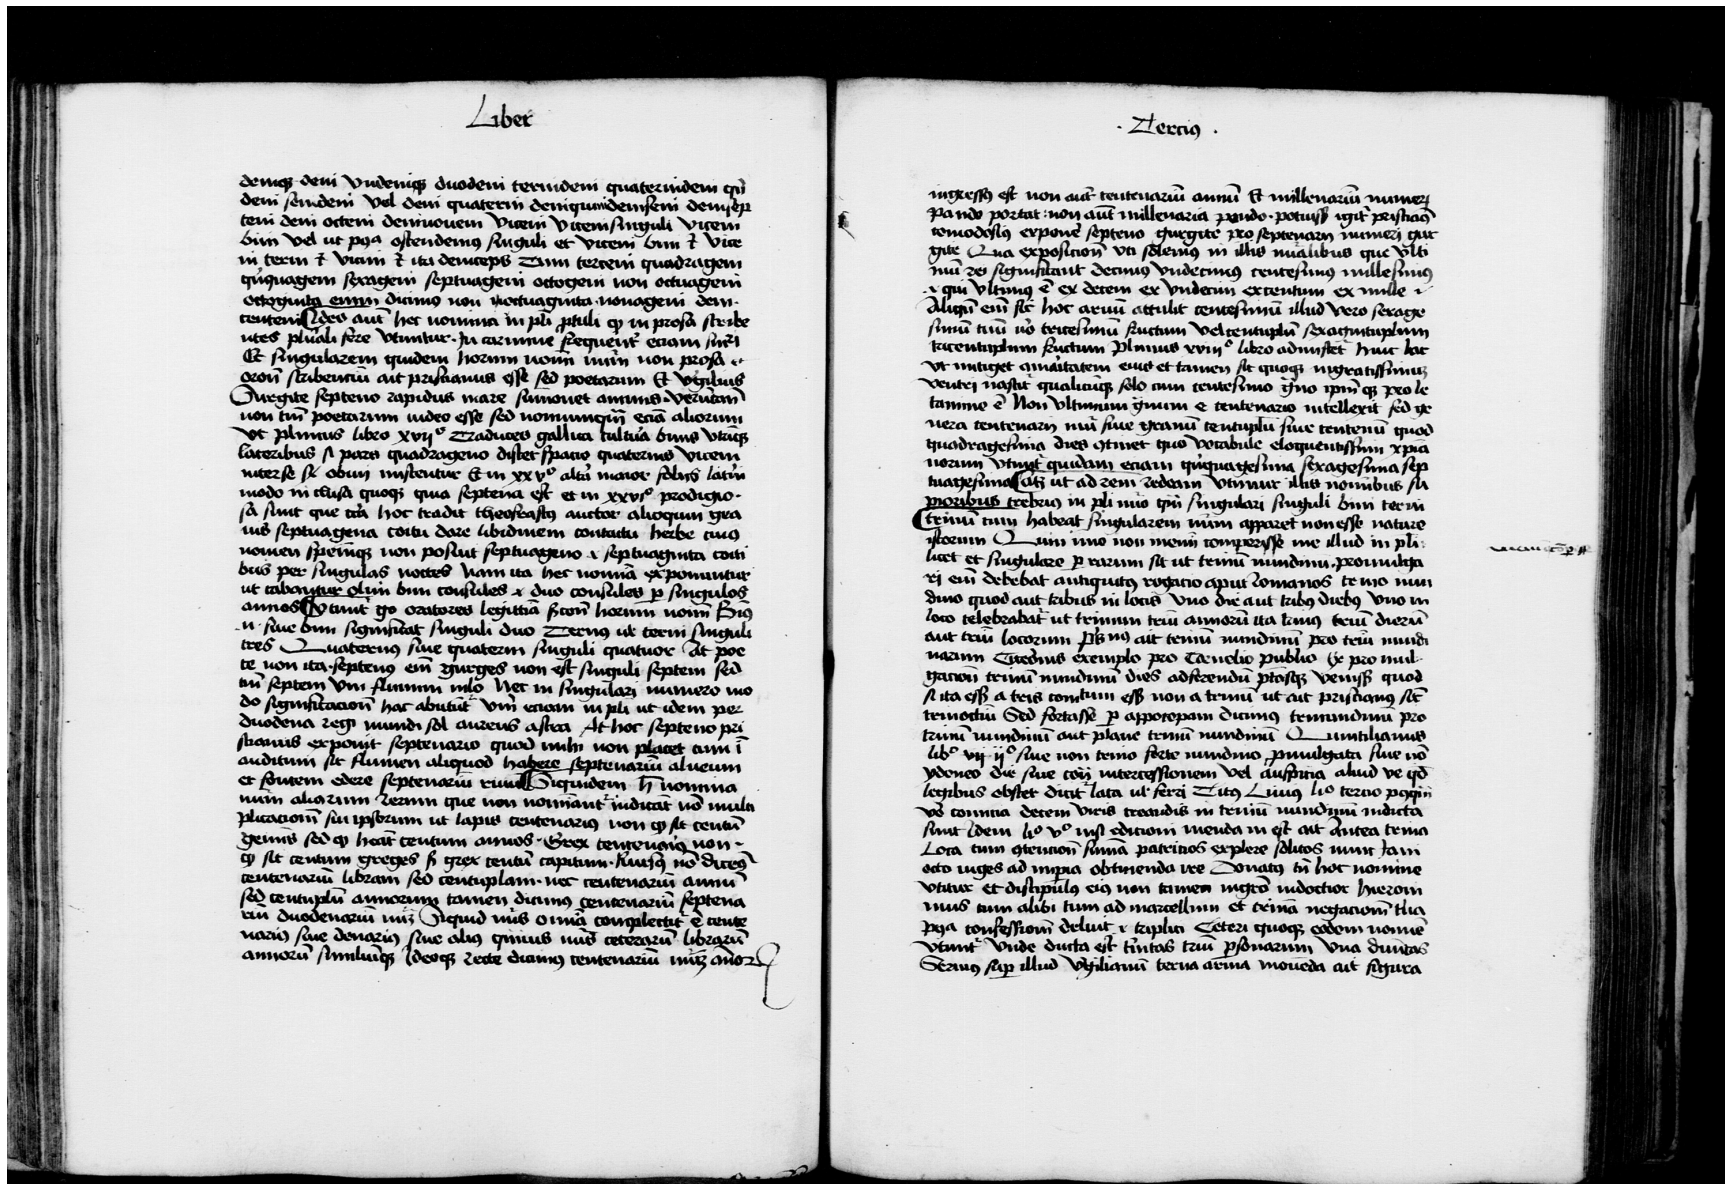 Liber
deniqꝫ deni Vndeniqꝫ duodeni ternideni quaternideni qñ
deni senideni Vel deni quaterni deniquinideniseni denisep
teni deni octeni deninoueni Viceni Vicenisinguli Viceni
bini Vel ut pꝰa ostendemꝰ singuli et Viceni bini et Vice
ni terni et Vicini et ita deniceps Tum terceni quadrageni
qͥnquageni sexageni septuageni octogeni non octuageni
octoginta enim dicimus non noctuaginta nonageni deni
centeni Ideo aūt hec nomina in pli ꝓtuli qꝫ in prosa scribe
ntes plurali fere Vtuntur In carmine frequent eciam sinḡri
Et singularem quidem horum noīm nūm non prosa
oronē scribencium ait pristianus esse sed poetarum Et Vgilius
Surgite septeno rapidus mare sumouet amnis Verutam
non tm̄ poetarum uideo esse sed nonnunqͣm eciā aliorum
Vt plinius libro xvijº Traduces gallica cultura binis Vtriqꝫ
lateribus si pars quadrageno distet spacio quaternis Viceni
inter se
modo in clusa quoqꝫ quia septena est et in xxvjº prodigio
sa sunt que cͥca hoc tradit theofrastꝰ auctor alioquin gra
uis septuagena coitu dare libidinem contactu herbe cuiꝰ
nomen speciemqꝫ non posuit septuageno & septuaginta coiti
bus per singulas noctes Nam ita hec nomīa exponuntur
ut cabantur olim bini consules & duo consules p singulos
annos Vtunt go oratores legittīa
.n. siue bini significat singuli duo Ternꝰ ul terni singuli
tres Quaternus siue quaterni singuli quatuor At poe
te non ita septenꝰ em̄ gurges non est singuli septem sed
tm̄ septem Vni flumini nilo Nec in singulari numero mo
do significacionē hac abutūt Vm̄ eciam in pli ut idem per
duodena regi mundi sol aureus astra At hoc septeno pri
stianus exponit septenario quod mihi non placet cum ī
auditum sit flumen aliquod habere septenariū alueum
et fontem edere septenariū riuū Siquidem h nomina
num aliarum rerum que non nomīant iudicat nō multi
plicacionē sui ipsorum ut lapis centenariꝰ non qꝫ sit centū
geminꝰ sed qꝫ heāt centum annos Grex centenariꝰ non
qꝫ sit centum greges s grex centū capitum Rursꝰ nō dicerē
centenariū libram sed centuplam nec centenariū annū
sed centuplū annorum tamen dicimꝰ centenariū septena
riū duodenariū num̄ Siquid nūs omīa complectit ē cente
nariꝰ siue denariꝰ siue aliꝰ qͥuius nūs ceterarū librarū
annorū similiūqꝫ Ideoqꝫ recte dicimꝰ centenariū num̄ annor
Tercius
ingressꝰ est non aut centenariū annū Et millenariū numeri
pando portat non aut millenaria pondo potuiss igit pristianꝰ
comodosiꝰ expone septeno gurgite pro septenarij numeri gur
gite Qua exposicionē Vti solemus in illis nūalibus que Vlti
mū rei significant decimus Vndecimus centesimus millesimus
& qui Vltimus ē ex decem ex Vndecim ex centum ex mille
Aliqͥn em̄ sic hoc aruū attulit centesimū illud Vero sexage
simū tuū uº tricesimū fructum Vel centuplū sexagintuplum
tricentuplum fructum Plinius xviijº libro adiustet huic lac
Vt mitiget amaritatem eius et tamen sit quoqꝫ ingratissimꝰ
Ventri nascit qualicūqꝫ solo cum centesimo grāo ipm̄qꝫ pro le
tamine ē Non Vltimum gnum e centenario intellexit sed ge
nera centenarij nū siue granū centuplū siue centenū quod
quadragesima dies ꝯtinet quo Vocabulo eloquentissimi xp̄ia
norum Vtunt quidam eciam qͥnquagesima sexagesima sep
tuagesima ut ad rem redeam Vtimur illis noībus su
perioribus crebriꝰ in pli nūo qm̄ singulari singuli bini terni
trinū cum habeat singularem nūm apparet non esse nature
istorum Quin imo non memini comperisse me illud in pli
licet et singulare p rarum sit ut trinū nundinū promulga
ri em̄ debebat antiquitꝰ rogacio aput romanos tr no nun
dino quod aut tribus in locis Vno die aut tribꝰ diebꝰ Vno in
loco celebrabat ut trinum triū annorū ita trinꝰ triū dierū
aut triū locorum ait trinū nundinū pro triū nundi
narum Cicerōis exemplo pro Cornelio publio Ex promul
gacionē trinū nundinū dies adferendū
si ita ess a tris comitum ess non a trinū ut ait pristianus sic
trinoctiū Sed fortasse p appocopam dicimus trinundinū pro
trinū nundinū aut plane trinū nundinū Quintilianus
libº vij ijº siue non trino forte nundino promulgata siue nō
ydoneo die siue cont intercessionem Vel auspicia aliud ve qd
legibus obstet dicit lata ul ferri Titꝰ Liuiꝰ lio tercio
uº comicia decem Viris creandis in trinū nundinū indicta
sunt Idem liº vº nisi edicioni menda in est ait Antea trina
Loca cum ꝯtencionē sūma patricios explere solitos nunc Iam
octo iuges ad impia obtinenda ire Donatꝰ tn̄ hoc nomine
Vtitur et discipulꝰ eiꝰ non tamen mgrō indoctior hieroni
mus cum alibi tum ad marcellum et trinā negacionē tua
pꝰa confessionē deluit & triplici Ceteri quoqꝫ eodem nomīe
Vtunt Vnde ducta est trinitas triū psonarum Vna diuitas
Seruius sup illud Vgilianū terna arma mouēda ait figura